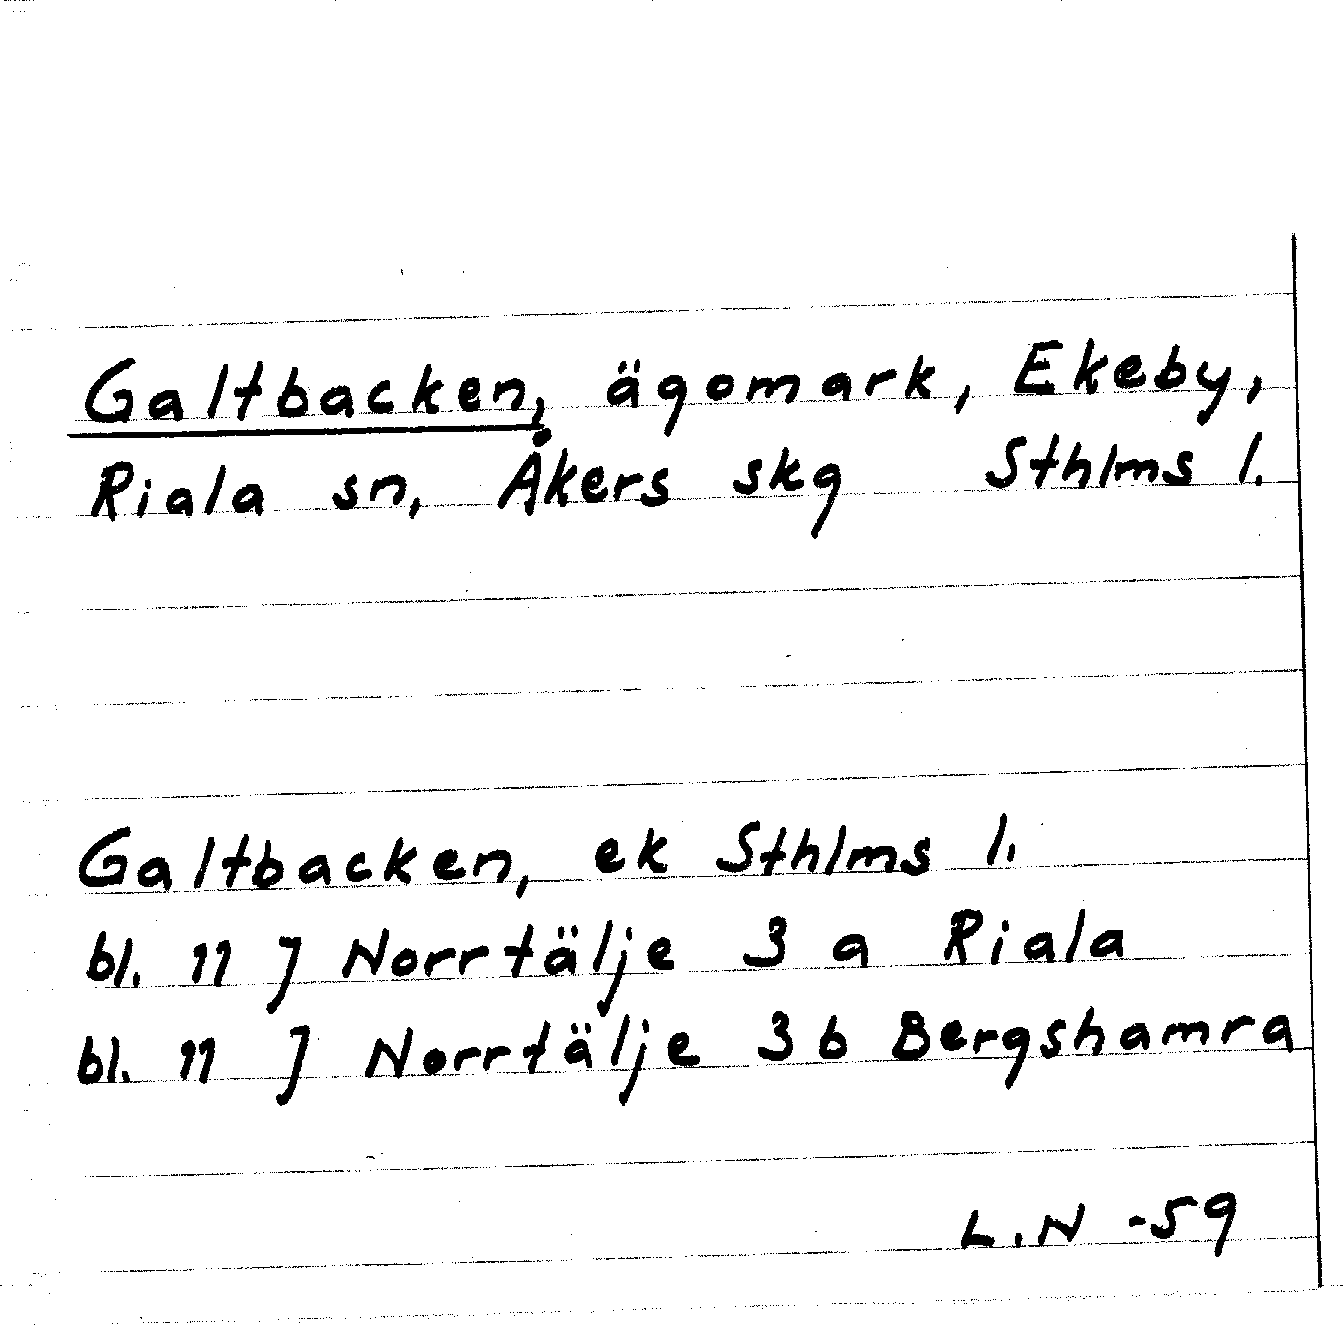 Galtbacken, ägomark, Ekeby,
Riala sn, Åkers skg Sthlms l.
Galtbacken, ek Sthlms l.
bl. 11 J Norrtälje 3 a Riala
bl. 11 J Norrtälje 3 b Bergshamra
L.N -59